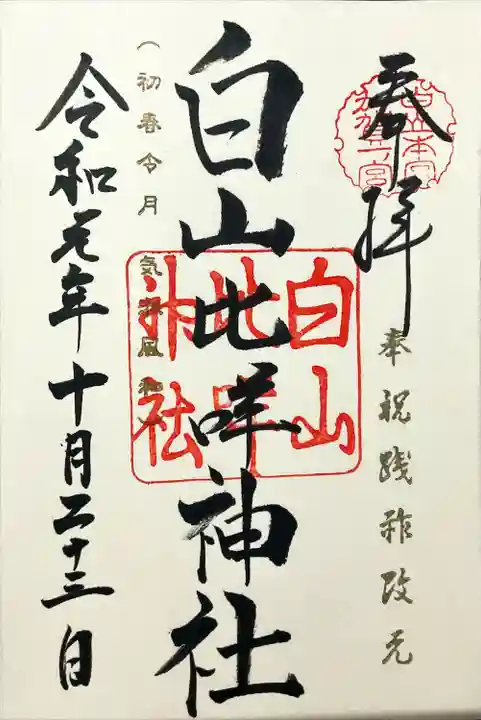 奉拝
白山本宮
加賀一ノ宮
奉祝践祚改元
白山比咩神社
白山
比咩
神社
(初春令月 気淑風和)
令和元年十月二十三日